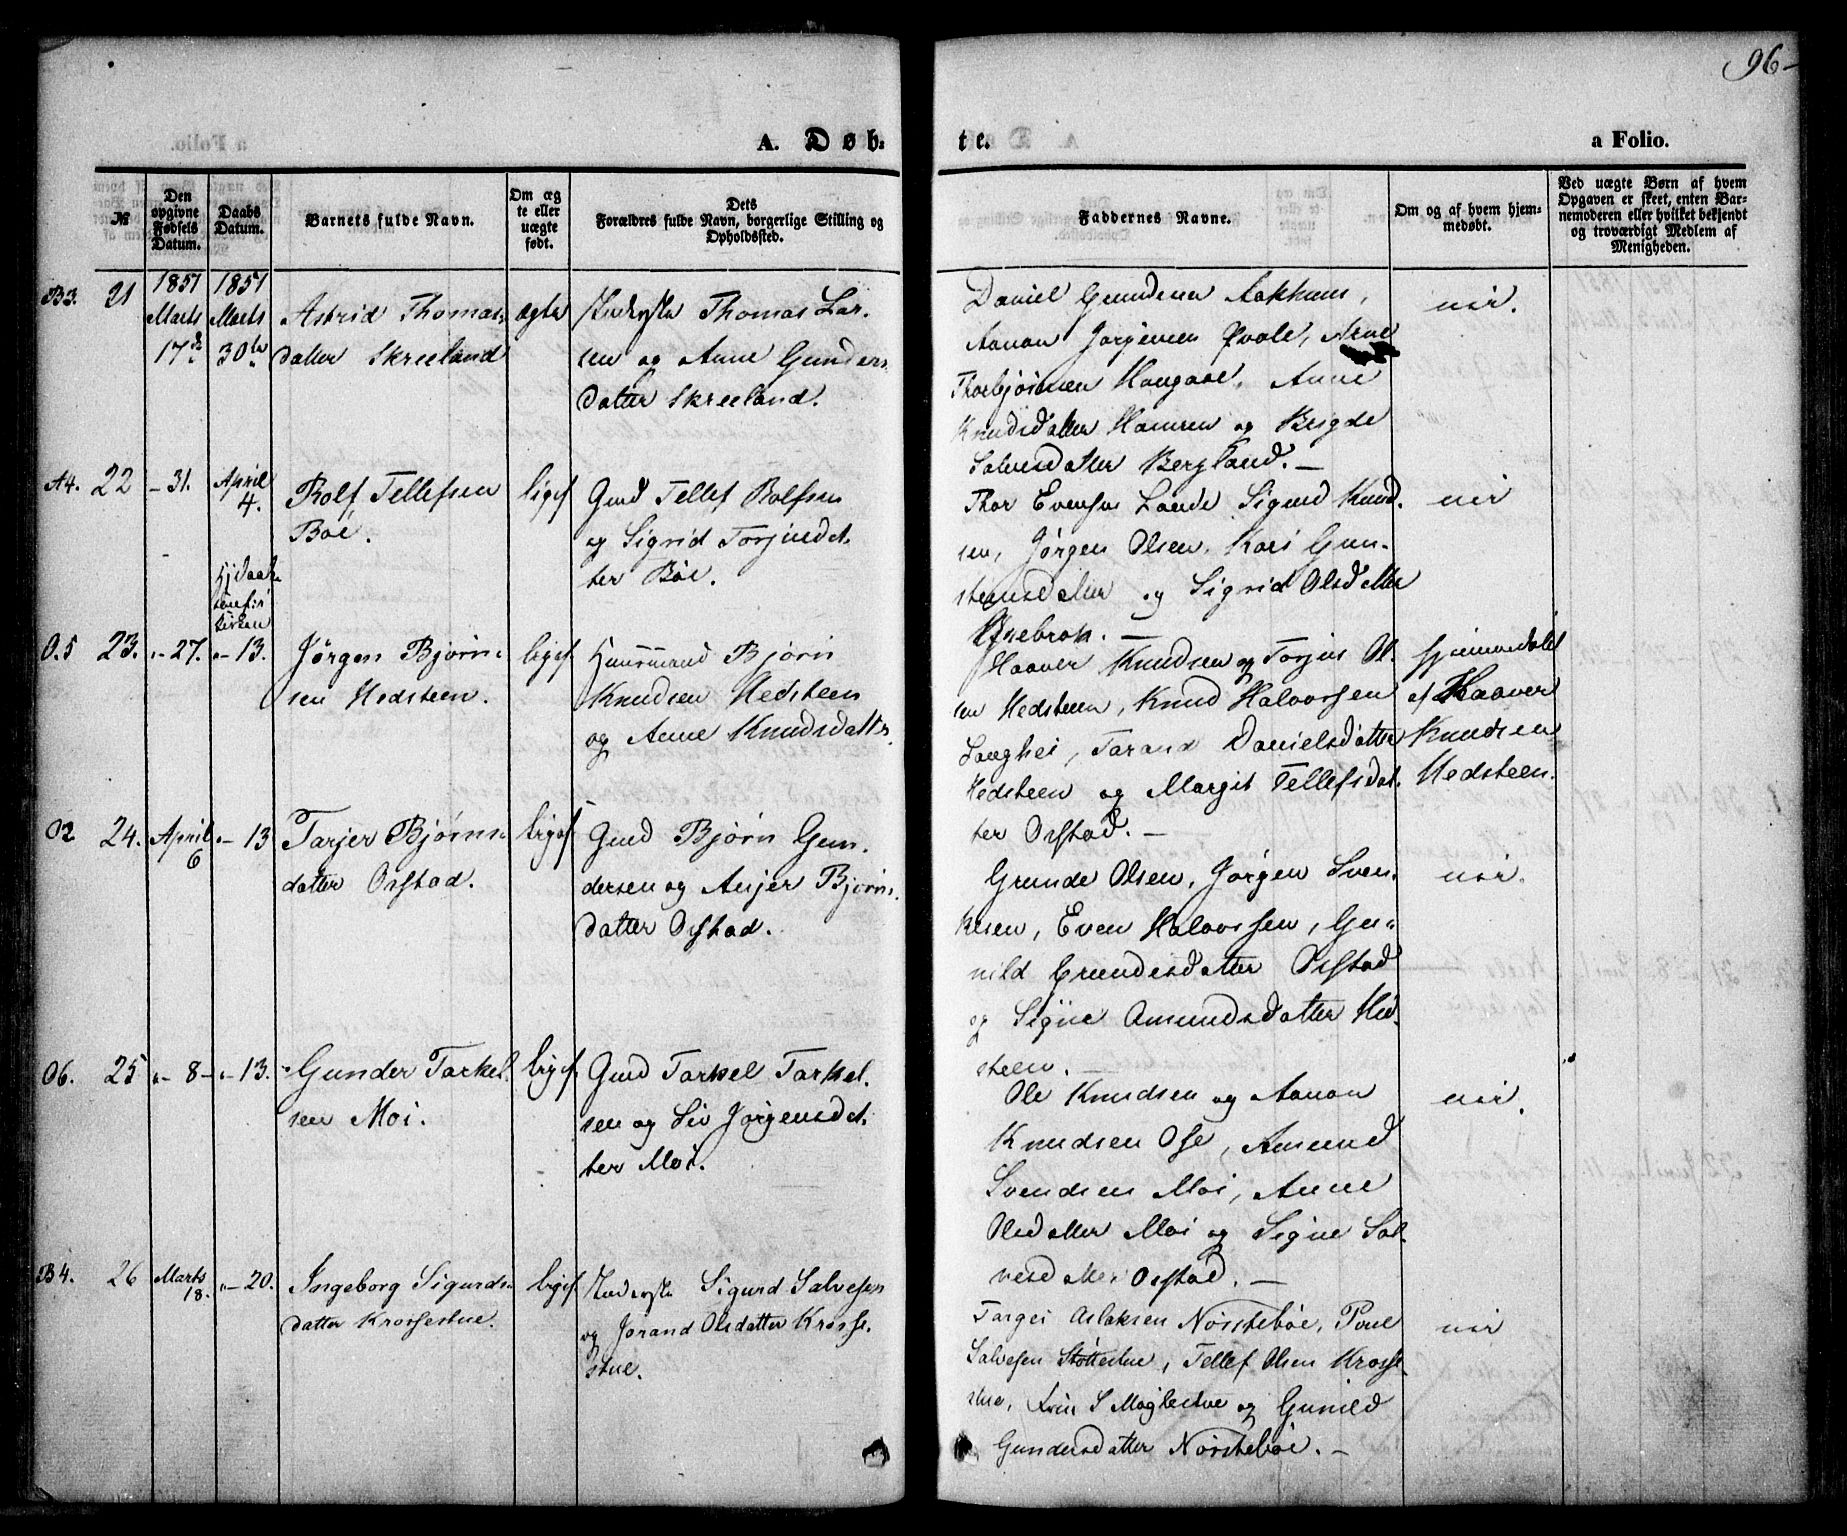 96-
A. Døb-
te.
a Folio.
№
Den opgivne Fødsels Datum.
Daabs Datum.
Barnets fulde Navn.
Om ægte eller uægte født.
Dets Forældres fulde Navn, borgerlige Stilling og Opholdssted.
Faddernes Navne.
Om og af hvem hjemmedøbt.
Ved uægte Børn af hvem Opgaven er skeet, enten Barnemoderen eller hvilket bekjendt og troværdigt Medlem af Menigheden.
B3. 21 1851 Marts 17de 1851 Marts 30te
Astrid Thomas-
datter Skreeland
ægte
Thomas Lar-
sen og Anne Gunders-
datter Skreeland.
Daniel Gundersen Aakhuus,
Aanon Jørgensen Qvale, Arne
Thorbjørnsen Haugaae, Anne
Knudsdatter Hamren og Brigde
Salvesdatter Bergland. —
nei.
A4. 22 - 31. April 4.
Rolf Tellefsen
Bøe.
liges.
Gmd Tellef Rolfsen
og Sigrid Torjusdat-
ter Bøe.
Thor Evensen Lande, Sigurd Knud-
sen, Jørgen Olsen, Kari Gun-
steinsdatter og Sigrid Olsdatter
Uppebroe. —
nei
O.5 23. "- 27. "- 13.
Jørgen Bjørn-
sen Hedsteen.
liges.
Huusmand Bjørn
Knudsen Hedsteen
og Anne Knudsdatter.
Haaver Knudsen og Torjus Ol-
sen Hedsteen, Knud Halvorsen
Langhei, Tarand Danielsdatter
Hedsteen og Margit Tellefsdat-
ter Ofstad. —
hjemmedøbt
af Haaver
Knudsen
Hedsteen.
O2 24. April 6 "- 13
Tarjer Bjørns-
datter Ofstad.
liges.
Gmd Bjørn Gun-
dersen og Anjer Bjørns-
datter Ofstad.
Grunde Olsen, Jørgen Sven-
kesen, Even Halvorsen, Gu-
nild Grundesdatter Ofstad
og Signe Amundsdatter Hed-
steen. —
nei.
O6. 25 "- 8 - "- 13.
Gunder Tarkel-
sen Moi.
ligef.
Gmd Tarkel Tarkel-
sen og Siv Jørgensdat-
ter Moi.
Ole Knudsen og Aanon
Knudsen Ose, Amund
Svendsen Moi, Anne
Olsdatter Moi og Signe Sal-
vesdatter Ofstad. —
nei.
B4. 26 Marts 18. "- 20.
Ingeborg Sigurds-
datter Krossestue.
ligef.
Sigurd Salvesen
og Jorand Olsdatter Krosse-
stue.
Targei Aslaksen Nørstebøe, Povel
Salvesen Støttestue, Tellef Olsen Krosse-
stue, S Moglestue og Gunild
Gundersdatter Nørstebøe. —
nei